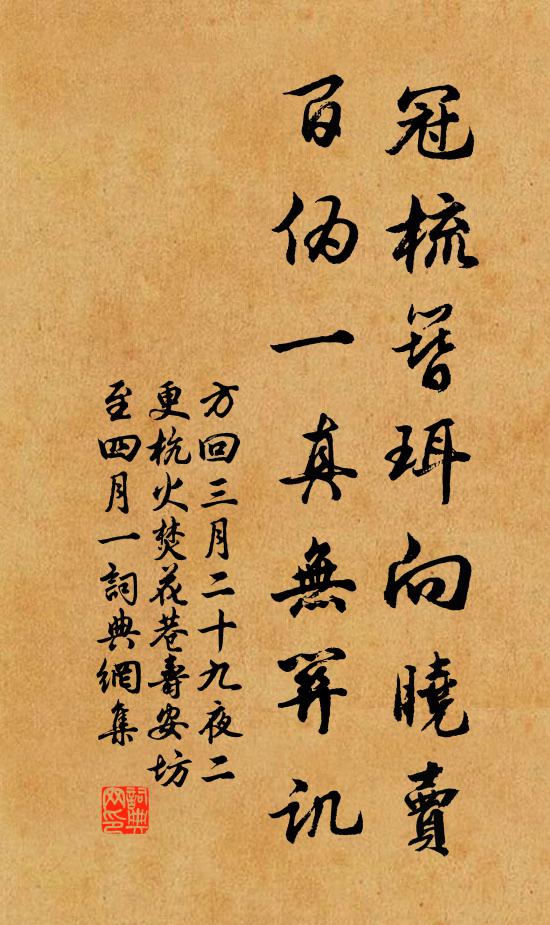 冠梳簪珥向曉賣
百偽一真無筭讥
方回三月二十九夜二
更杭火焚花巷壽安坊
至四月一詞典網集
詞典
网印